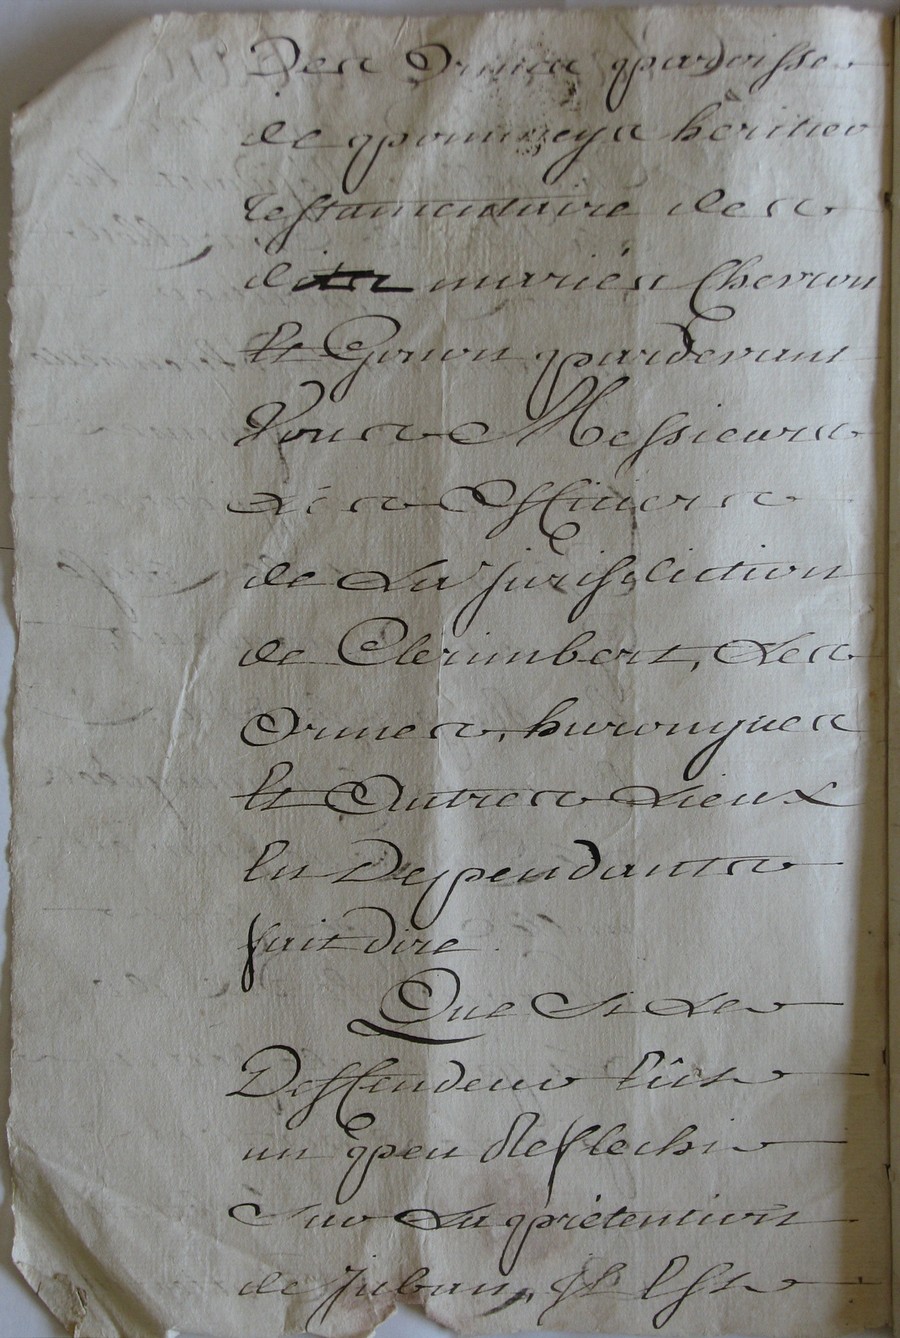 Des Ormes paroisse
de pommeys heritier
Testamentaire des
mariés Chervon
Et Gonon pardevant
Vous Messieurs
Les Officiers
de La jurisdiction
de Clerimbert, Les
Ormes, hurongues
Et Autres Lieux
En Dependants
fait dire
Que Si Le
Deffendeur Eût
un peu Reflechi
Sur La prétention
de Juban, Il Est